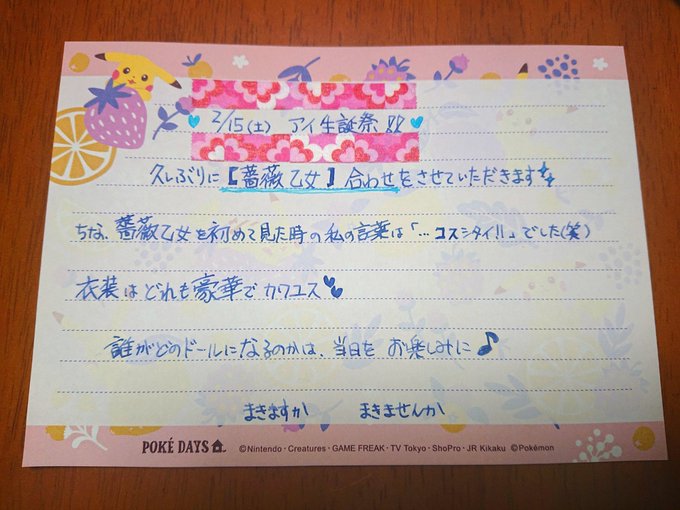 2/15(土) アイ生誕祭!!
久しぶりに【薔薇乙女】合わせをさせていただきます
ちな、薔薇乙女を初めて見た時の私の言葉は「…コスシタイ!!」でした(笑)
衣装はどれも豪華でカワユス
誰がどのドールになるのかは、当日をお楽しみに♪
まきますか まきませんか
POKÉ DAYS
©Nintendo・Creatures・GAME FREAK・TV Tokyo・ShoPro・JR Kikaku ©Pokémon